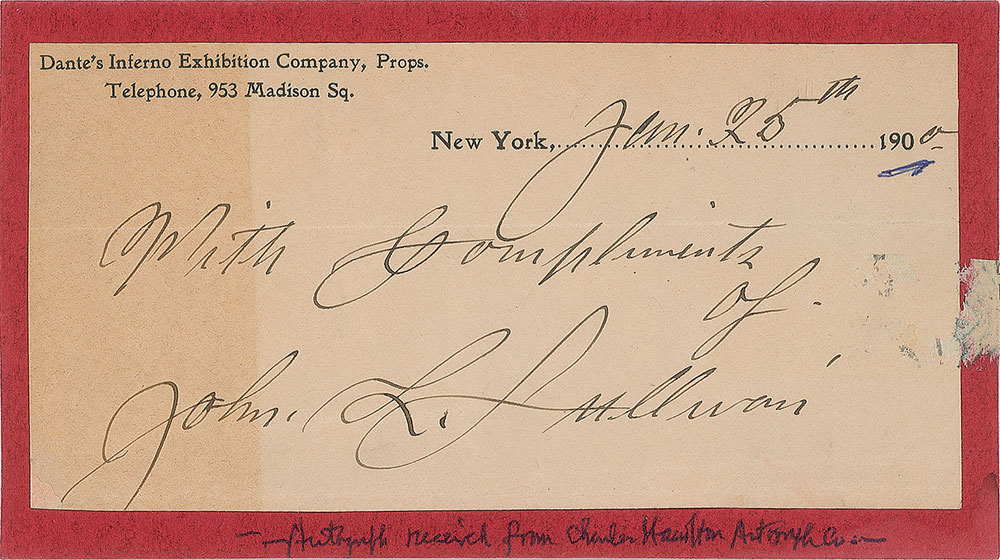 Dante's Inferno Exhibition Company, Props.
Telephone, 953 Madison Sq.
New York, Jan. 25th 1900
With Compliments
of
John. L. Sullivan
Autograph received from Charles Hamilton Autograph Co